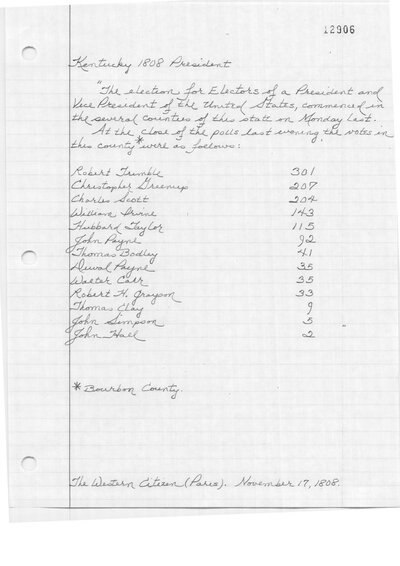 12906
Kentucky 1808 President
"The election for Electors of a President and
Vice President of the United States, commenced in
the several counties of this state on Monday last.
At the close of the polls last evening, the votes in
this county* were as follows:
Robert Trimble 301
Christopher Greenup 207
Charles Scott 204
William Irvine 143
Hubbard Taylor 115
John Payne 92
Thomas Bodley 41
Duval Payne 35
Walter Carr 35
Robert H. Grayson 33
Thomas Clay 9
John Simpson 5
John Hall 2
* Bourbon County.
The Western Citizen (Paris). November 17, 1808.